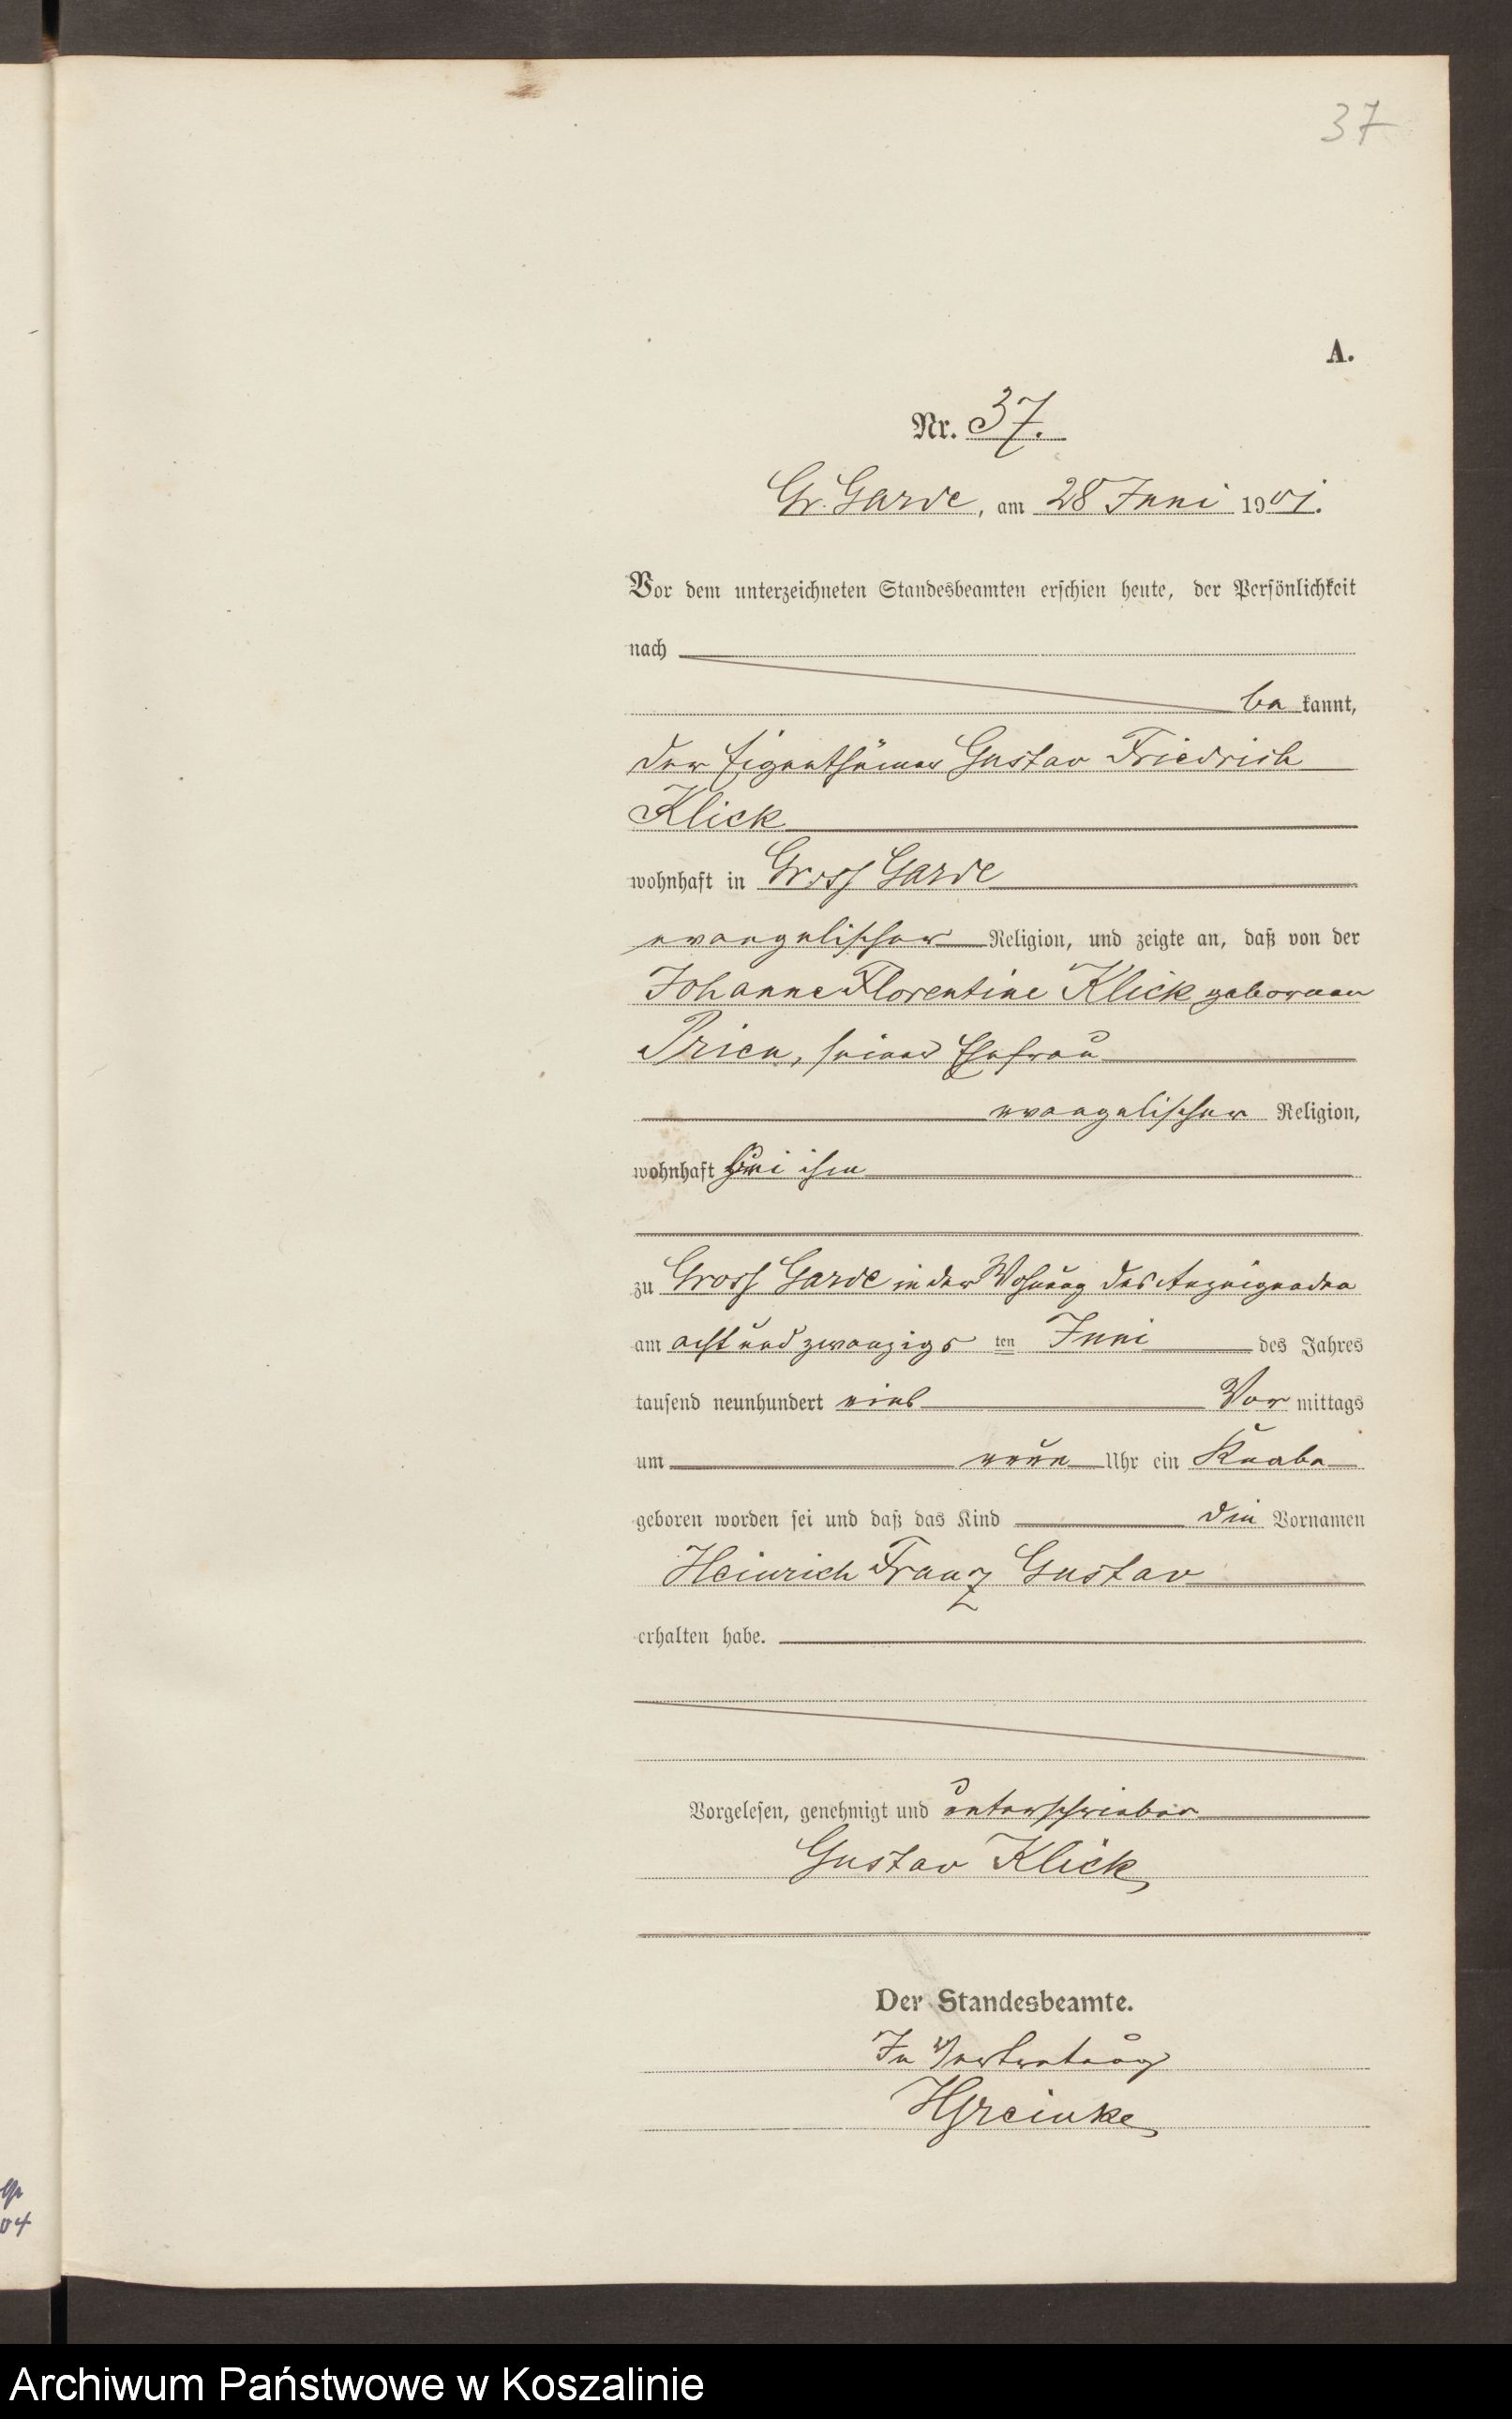 37
A.
Nr. 37.
Gr. Garde, am 28 Juni 1901.
Vor dem unterzeichneten Standesbeamten erschien heute, der Persönlichkeit
nach
be kannt,
der Eigenthümer Gustav Friedrich
Klick
wohnhaft in Gross Garde
evangelischer Religion, und zeigte an, daß von der
Johanne Florentine Klick geborenen
Prien, seiner Ehefrau
evangelischer Religion,
wohnhaft bei ihm
zu Gross Garde in der Wohnung des Anzeigenden
am acht und zwanzigs ten Juni des Jahres
tausend neunhundert eins Vor mittags
um neun Uhr ein Knabe
geboren worden sei und daß das Kind die Vornamen
Heinrich Franz Gustav
erhalten habe.
Vorgelesen, genehmigt und unterschrieben
Gustav Klick
Der Standesbeamte.
In Vertretung
HGreinke
04
Archiwum Państwowe w Koszalinie